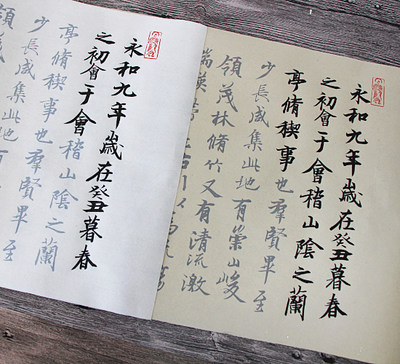 永和九年歲在癸丑暮春
之初會于會稽山陰之蘭
亭脩稧事也羣賢畢至
少長咸集此地有崇山峻
領茂林脩竹又有清流激
湍暎帶左右引以
永和九年歲在癸丑暮春
之初會于會稽山陰之蘭
亭脩稧事也羣賢畢至
少長咸集此地